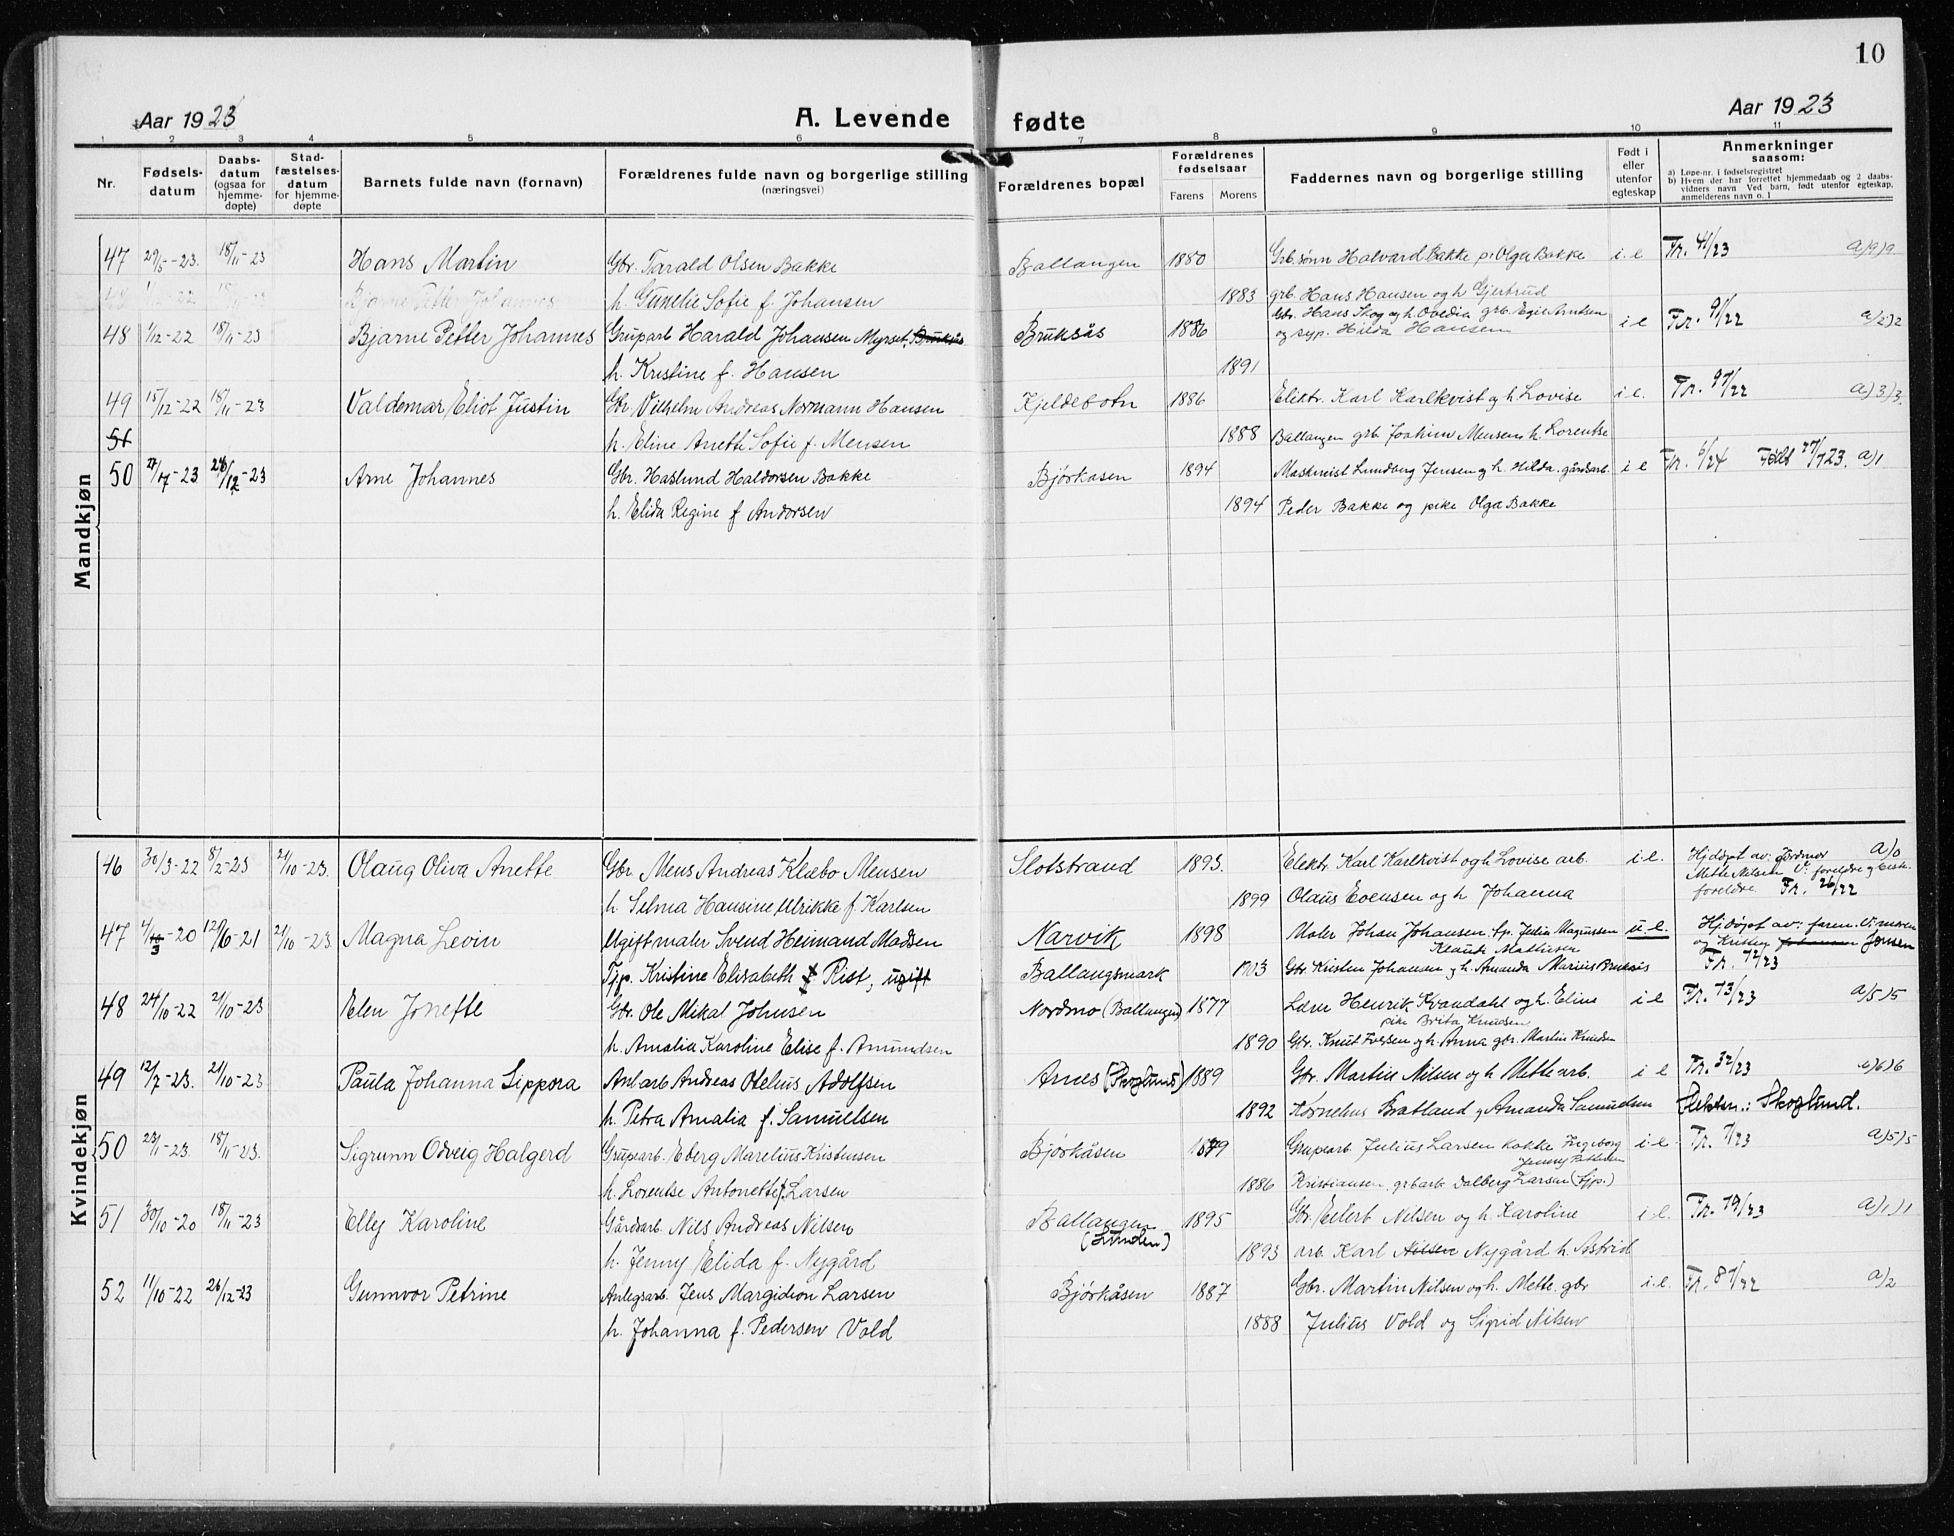 10
Aar 1923 A. Levende fødte Aar 1923
1 2 3 4 5 6 7 8 9 10 11
Nr. Fødsels-datum Daabs-datum (ogsaa for hjemme-døpte) Stad-fæstelses-datum for hjemme-døpte Barnets fulde navn (fornavn) Forældrenes fulde navn og borgerlige stilling (næringsvei) Forældrenes bopæl Forældrenes fødselsaar Farens Morens Faddernes navn og borgerlige stilling Født i eller utenfor egteskap Anmerkninger saasom:
a) Løpe-nr. i fødselsregistret
b) Hvem der har forrettet hjemmedaab og 2 daabs-vidners navn Ved barn, født utenfor egteskap, anmelderens navn o. l
Mandkjøn
47 29/5-23. 18/11-23 Hans Martin Gbr. Tarald Olsen Bakke Ballangen 1880 Grb.sønn Halvard Bakke p. Olga Bakke i.e Fr. 41/23 a)9)9
48 1/12-22 18/11-23 Bjarne Petter Johannes h. Gunelie Sofie f. Johansen 1883 grb. Hans Hansen og h Gjertrud
Gbr. Hans Skog og h. Ovedia grb. Egil Arntsen
48 1/12-22 18/11-23 Bjarne Petter Johannes Gruparb Harald Johansen Myrset, Bruksås Bruksås 1886 og syp. Hilda Hansen i e Fr. 91/22 a)2)2
h. Kristine f. Hansen 1891
49 15/12-22 18/11-23 Valdemar Eliot Justin Gbr. Vilhelm Andreas Normann Hansen Kjeldebotn 1886 Elektr. Karl Karlkvist og h. Lovise i.e. Fr. 97/22 a)3)3.
51 h. Eline Aneth Sofie f. Mensen 1888 Ballangen grb. Joakim Mensen h. Lorentse
50 27/7-23 26/12-23 Arne Johannes Gbr. Haslund Haldorsen Bakke Bjørkåsen 1894 Maskinist Lundberg Jensen og h. Hilda. gårdsarb. i e Fr. 6/24 Født 27/7 23. a)1
h. Elida Regine f Andorsen 1894 Peder Bakke og pike Olga Bakke
Kvindekjøn
46 30/3-22 8/2-23 21/10-23. Olaug Oliva Anette Gbr. Mens Andreas Klæbo Mensen Slotstrand 1893. Elektr. Karl Karlkvist og h Lovise arb. i.e. Hjdøpt av: jordmor a)0
Mette Nilsen V: foreldre og beste-
h. Selma Hansine Ulrikke f. Karlsen 1899 Olaus Evensen og h Johanna foreldre. Fr. 26/22
47 4/3-20 12/6-21 21/10-23. Magna Levin Ugift maler Svend Heimand Madsen Narvik 1898 Maler Johan Johansen. tp. Julia Magnussen u.e. Hjdøpt av: faren. V: moren
Klaudi Mathisen og Kristen Johansen Jensen
Tjp. Kristine Elisabeth f Rist, ugift Ballangsmark 1903 Gbr Kristen Johansen og h. Amanda Marius Bruksås Fr. 12/23
48 24/10-22 21/10-23 Elen Jonette Gbr. Ole Mikal Johnsen Nordmo (Ballangen) 1877 Lærer Henrik Kvandahl og h. Eline i e Fr. 13/23 a)5)5
pike Brita Knudsen
h. Amalia Karoline Elise f. Amundsen 1890 Gbr. Knut Iversen og h. Anna gbr. Martin Knudsen
49 12/7-23. 21/10-23 Paula Johanna Sippora Anl.arb Andreas Otelius Adolfsen Arnes (Skoglund) 1889 Gbr. Martin Nilsen og h. Mette arb. i e Fr. 32/23 a)6)6
h. Petra Amalia f. Samuelsen 1892 Kornelius Bratland og Amanda Samuelsen Slektsn.: Skoglund.
50 23/1-23. 18/11-23. Sigrunn Odveig Halgerd Gruparb. Eberg Marelius Kristensen Bjørkåsen 1879 Gruparb. Julius Larsen kokke Ingeborg i.e Fr. 7/23 a)5)5
Jenny Pettersen
h. Lorentse Antonette f. Larsen 1886 Kristiansen gr.arb. Dalberg Larsen (Tjp.)
51 30/10-20 18/11-23 Elly Karoline Gårdarb. Nils Andreas Nilsen Ballangen 1895 Gbr. Eilert Nilsen og h. Karoline i e. Fr. 19/23 a)1)1
(Lunden)
h. Jenny Elida f. Nygård 1893 arb. Karl Nilsen Nygård h. Astrid
52 11/10-22 26/12-23 Gunnvor Petrine Anlegsarb. Jens Margidion Larsen Bjørkåsen 1887 Gbr. Martin Nilsen og h. Mette. gbr i.e. Fr. 87/22 a)2
h. Johanna f. Pedersen Vold 1888 Julius Vold og Sigrid Nilsen